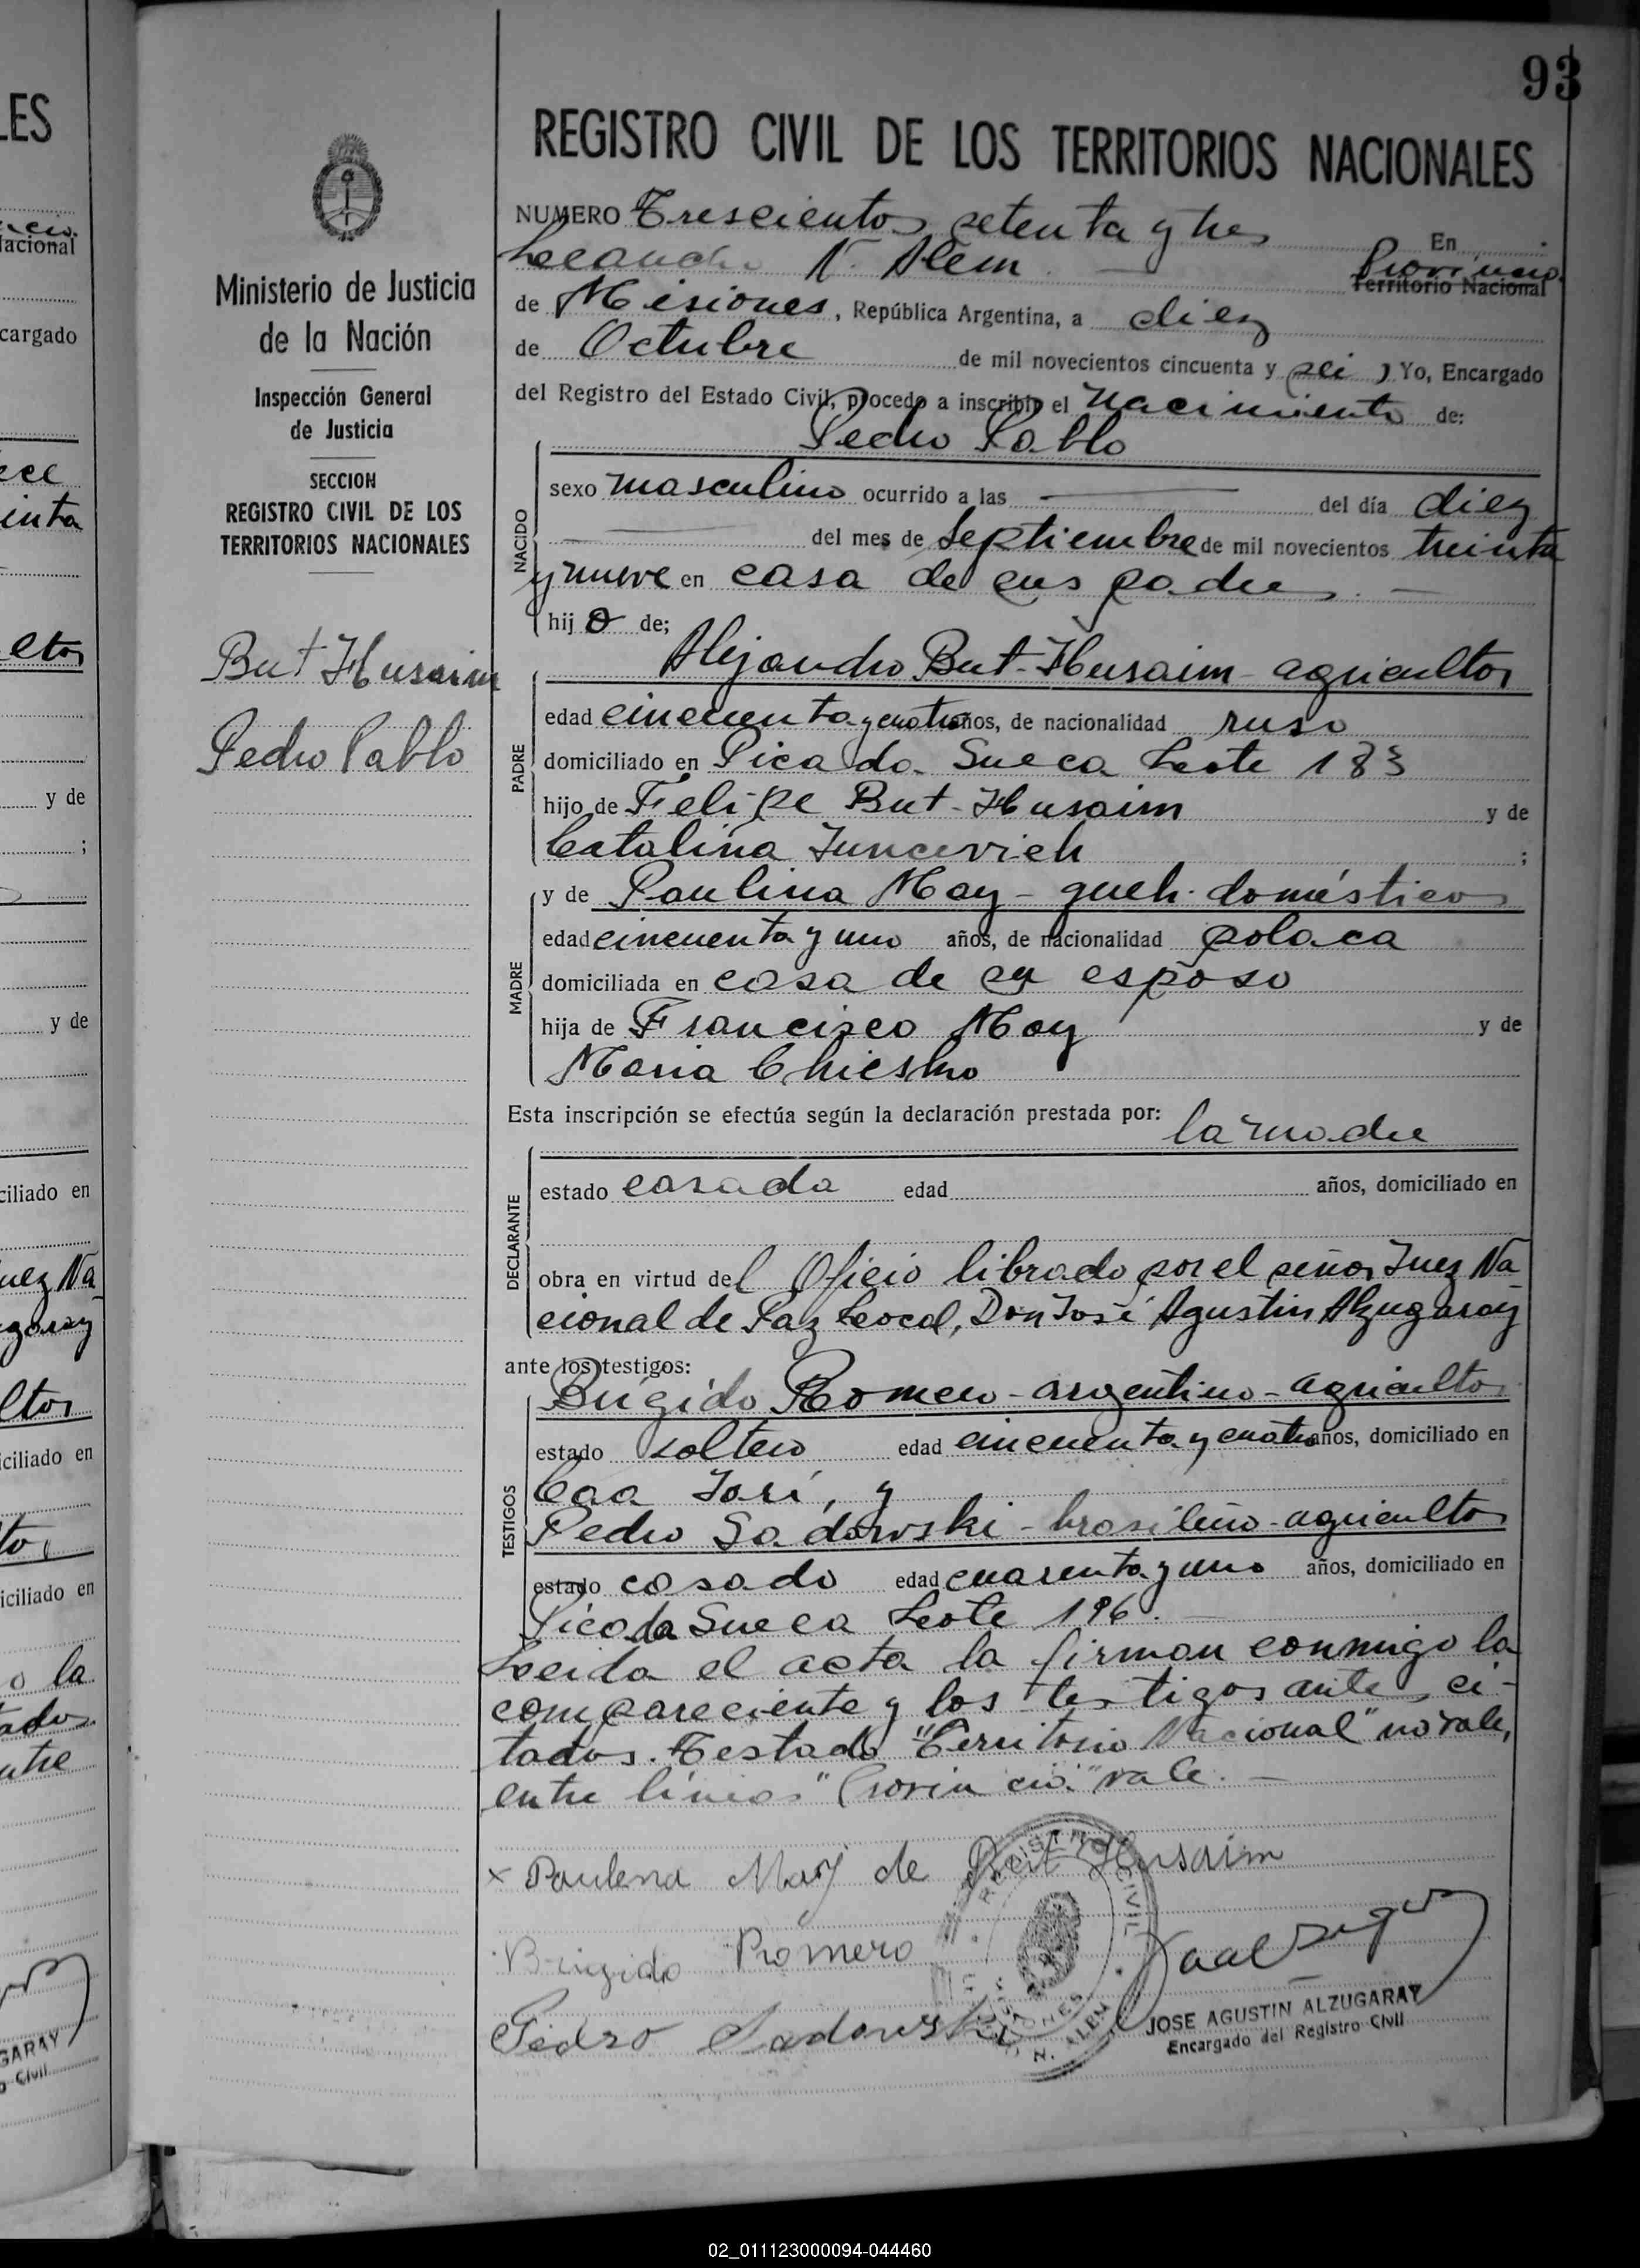 93
REGISTRO CIVIL DE LOS TERRITORIOS NACIONALES
Ministerio de Justicia
de la Nación
Inspección General
de Justicia
SECCION
REGISTRO CIVIL DE LOS
TERRITORIOS NACIONALES
But Husaim
Pedro Pablo
NUMERO Trescientos setenta y tres En
Leandro N. Alem Provincia
Territorio Nacional
de Misiones, República Argentina, a diez
de Octubre de mil novecientos cincuenta y seis Yo, Encargado
del Registro del Estado Civil, procedo a inscribir el Nacimiento de:
Pedro Pablo
NACIDO
sexo masculino ocurrido a las — del día diez
— del mes de Septiembre de mil novecientos treinta
y nueve en casa de sus padres. —
hijo de;
PADRE
Alejandro But-Husaim - agricultor
edad cincuenta y cuatro años, de nacionalidad ruso
domiciliado en Picada Sueca Lote 183
hijo de Felipe But-Husaim y de
Catalina Juncevich ;
MADRE
y de Paulina May - queh. domésticos
edad cincuenta y uno años, de nacionalidad polaca
domiciliada en casa de su esposo
hija de Francisco May y de
Maria Chiesko
Esta inscripción se efectúa según la declaración prestada por: la madre
DECLARANTE
estado casada edad años, domiciliado en
obra en virtud del Oficio librado por el señor Juez Na-
cional de Paz Local, Don José Agustin Alzugaray
ante los testigos:
TESTIGOS
Brigido Romero - argentino - agricultor
estado soltero edad cincuenta y cuatro años, domiciliado en
Caa Yarí, y
Pedro Sadowski - brasileño - agricultor
estado casado edad cuarenta y uno años, domiciliado en
Picada Sueca Lote 196. —
Leida el acta la firman conmigo la
compareciente y los testigos antes ci-
tados. Testado "Territorio Nacional" no vale,
entre líneas "Provincia" vale. —
x Paulena May de But Husaim
Brigido Romero
Pedro Sadowski
REGISTRO CIVIL
MISIONES
N. ALEM
JOSE AGUSTIN ALZUGARAY
Encargado del Registro Civil
02_011123000094-044460